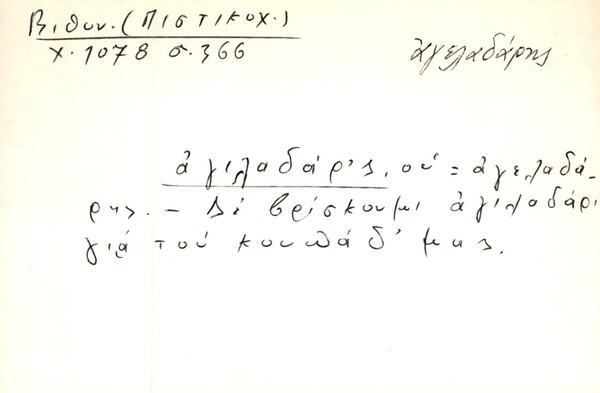 Βιθυν. (Πιστικοχ.)
χ. 1078 σ. 366
ἀγελαδάρης
ἀγιλαδάρ'ς, οὑ = ἀγελαδά-
ρης. – Δὲ βρίσκουμι ἀγιλαδάρι
γιά τοὺ κουπάδ' μας.